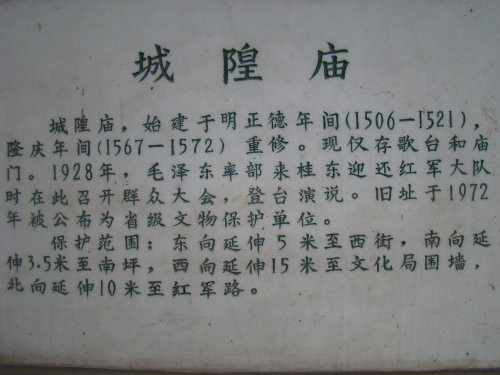 城隍庙
城隍庙，始建于明正德年间(1506—1521)，
隆庆年间(1567—1572) 重修。现仅存歌台和庙
门。1928年，毛泽东率部来桂东迎还红军大队
时在此召开群众大会，登台演说。旧址于1972
年被公布为省级文物保护单位。
保护范围：东向延伸5米至西街，南向延
伸3.5米至南坪，西向延伸15米至文化局围墙，
北向延伸10米至红军路。